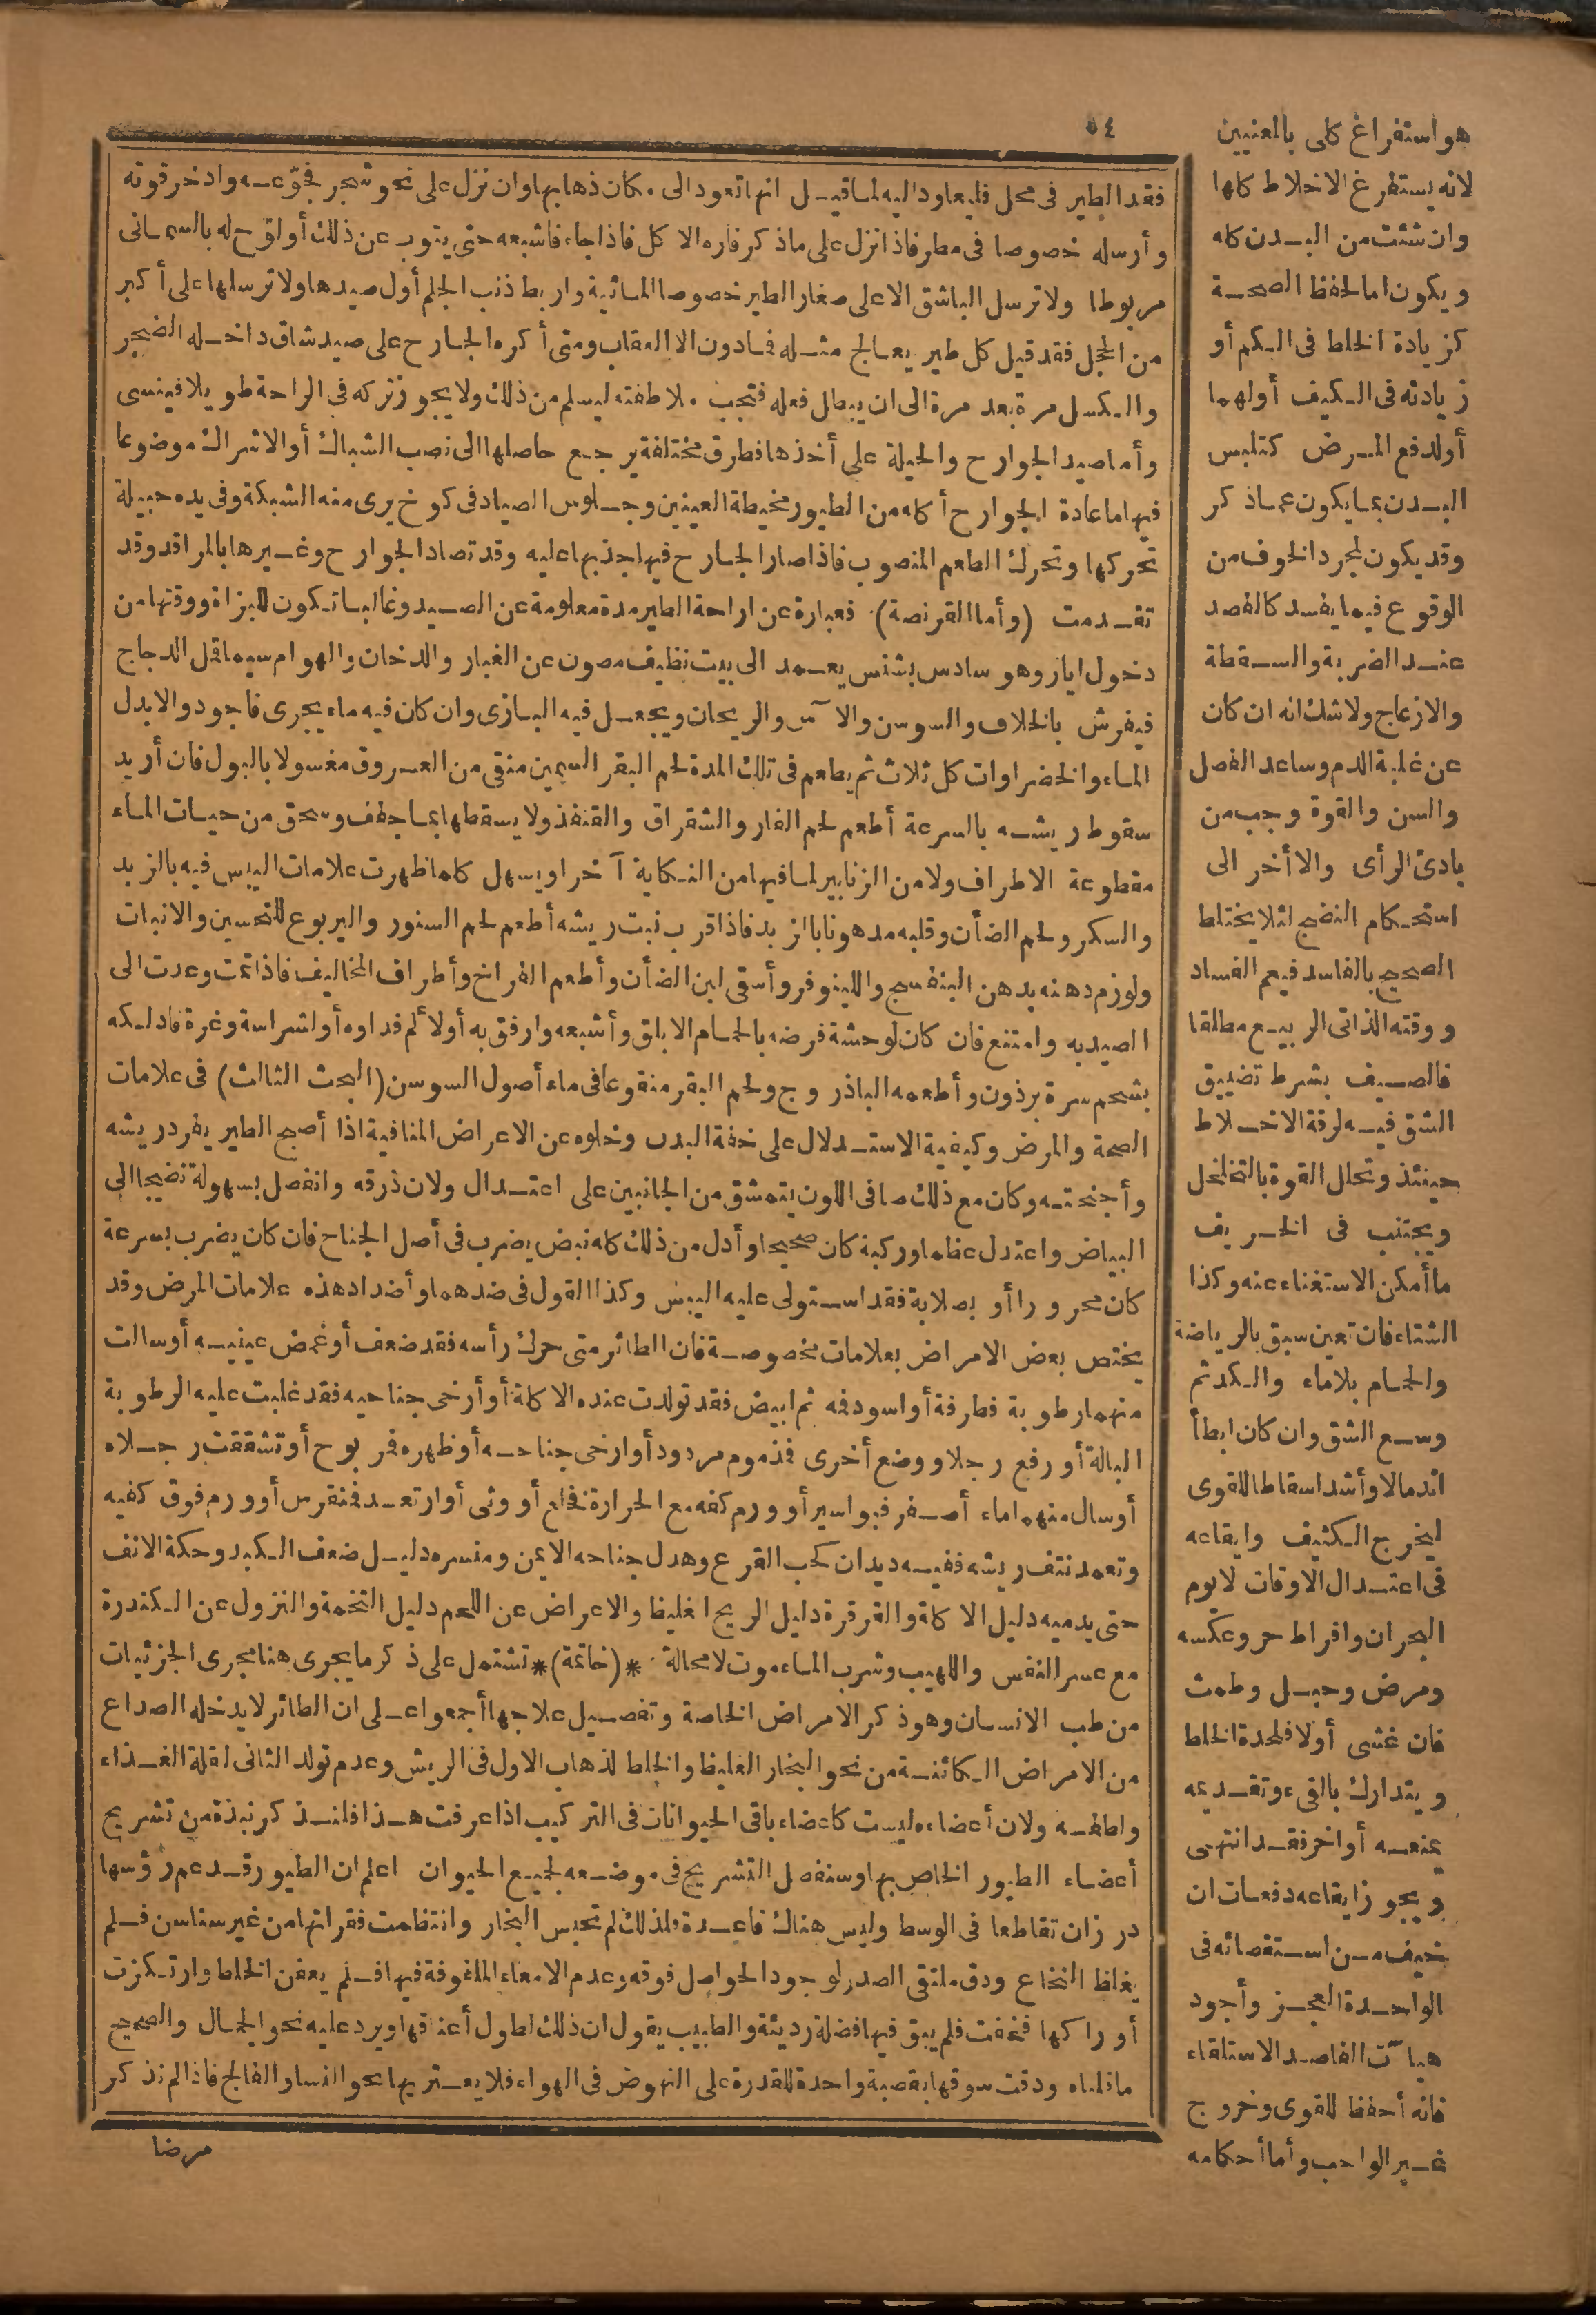 ٥٤
فقد الطير فى محل فليعاود اليه لما قيل انها تعود الى مكان ذهابها وان نزل على نحو شجر فجوّعه وادخر قوته
وأرسله خصوصا فى مطر فاذا نزل على ماذكر فاره الاكل فاذا جاء فاشبعه حتى يتوب عن ذلك أو لوّح له بالسمانى
مربوطا ولا ترسل الباشق الا على صغار الطير خصوصا المائية واربط ذنب الجلم أول صيدها ولا ترسلها على أكبر
من الحجل فقد قيل كل طير يعالج مثله فمادون الا العقاب ومتى أكره الجارح على صيد شاق داخله الضجر
والكسل مرة بعد مرة الى ان يبطل فعله فتجب ملاطفته ليسلم من ذلك ولا يجوز تركه فى الراحة طويلا فينسى
وأما صيد الجوارح والحيلة على أخذها فطرق مختلفة يرجع حاصلها الى نصب الشباك أو الاشراك موضوعا
فيها ما عادة الجوارح أكله من الطيور مخيطة العينين وجلوس الصياد فى كوخ يرى منه الشبكة وفى يده حبيلة
تحركها وتحرك الطعم المنصوب فاذا صار الجارح فيها جذبها عليه وقد تصاد الجوارح وغيرها بالمراقد وقد
تقدمت (وأما القرنصة) فعبارة عن اراحة الطير مدة معلومة عن الصيد وغالبا تكون للبزاة ووقتها من
دخول ايار وهو سادس بشنس يعمد الى بيت نظيف مصون عن الغبار والدخان والهوام سيما قمل الدجاج
فيفرش بالخلاف والسوسن والآس والريحان ويجعل فيه البازى وان كان فيه ماء يجرى فاجود والا بدل
الماء والخضراوات كل ثلاث ثم يطعم فى تلك المدة لحم البقر السمين منقى من العروق مغسولا بالبول فان أريد
سقوط ريشه بالسرعة أطعم لحم الفار والشقراق والقنفذ ولا يسقطها بما جفف وسحق من حيات الماء
مقطوعة الاطراف ولا من الزنابير لما فيها من النكاية آخرا ويسهل كلما ظهرت علامات اليبس فيه بالزبد
والسكر ولحم الضأن وقلبه مدهونا بالزبد فاذا قرب نبت ريشه أطعم لحم السنور واليربوع للتحسين والانبات
ولوزم دهنه بدهن البنفسج واللينوفر وأسقى لبن الضأن وأطعم الفراخ وأطراف المخاليف فاذا تمت وعدت الى
الصيد به وامتنع فان كان لوحشة فرضه بالحمام الابلق وأشبعه وارفق به أو لألم فداوه أو لشراسة وغرة فادلكه
بشحم سرة برذون وأطعمه الباذروج ولحم البقر منقوعا فى ماء أصول السوسن (البحث الثالث) فى علامات
الصحة والمرض وكيفية الاستدلال على خفة البدن وخلوه عن الاعراض المنافية اذا أصبح الطير يطرد ريشه
وأجنحته وكان مع ذلك صافى اللون يتمشق من الجانبين على اعتدال ولان ذرقه وانفصل بسهولة نضيجا الى
البياض واعتدل عظما وركبة كان صحيحا وأدل من ذلك كله نبض يضرب فى أصل الجناح فان كان يضرب بسرعة
كان محرورا أو بصلابة فقد استولى عليه اليبس وكذا القول فى ضدهما وأضداد هذه علامات المرض وقد
يختص بعض الامراض بعلامات مخصوصة فان الطائر متى حرك رأسه فقد ضعف أو غمض عينيه أو سالت
منهما رطوبة فطرفة أو اسود فمه ثم ابيض فقد تولدت عنده الاكلة أو أرخى جناحيه فقد غلبت عليه الرطوبة
البالة أو رفع رجلا ووضع أخرى فذموم مردود أو ارخى جناحه أو ظهره فريوح أو تشققت رجلاه
أوسال منهما ماء أصفر فبواسير أو ورم كفه مع الحرارة فخلع أو وثى أو ارتعد فنقرس أو ورم فوق كفيه
وتعمد نتف ريشه ففيه ديدان كحب القرع وهدل جناحه الايمن ومنسره دليل ضعف الكبد وحكة الانف
حتى يدميه دليل الاكلة والقرقرة دليل الريح الغليظ والاعراض عن اللحم دليل التخمة والنزول عن الكندرة
مع عسر النفس واللهيب وشرب الماء موت لا محالة *(خاتمة)* تشتمل على ذكر ما يجرى هنا مجرى الجزئيات
من طب الانسان وهو ذكر الامراض الخاصة وتفصيل علاجها أجمعوا على ان الطائر لا يدخله الصداع
من الامراض الكائنة من نحو البخار الغليظ والخلط لذهاب الاول فى الريش وعدم تولد الثانى لقلة الغذاء
ولطفه ولان أعضاءه ليست كاعضاء باقى الحيوانات فى التركيب اذا عرفت هذا فلنذكر نبذة من تشريح
أعضاء الطيور الخاص بها وسنفصل التشريح فى موضعه لجميع الحيوان اعلم ان الطيور قد عم رؤسها
درزان تقاطعا فى الوسط وليس هناك قاعدة فلذلك لم تحبس البخار وانتظمت فقراتها من غير سناسن فلم
يغلظ النخاع ودق ملتقى الصدر لوجود الحواصل فوقه وعدم الامعاء الملفوفة فيها فلم يعفن الخلط وارتكزت
أوراكها فخفت فلم يبق فيها فضلة رديئة والطبيب يقول ان ذلك لطول أعناقها ويرد عليه نحو الجمال والصحيح
ماقلناه ودقت سوقها بقصبة واحدة للقدرة على النهوض فى الهواء فلا يعتريها نحو النسا والفالج فاذا لم نذكر
مرضا
هو استفراغ كلى بالمعنيين
لانه يستفرغ الاخلاط كلها
وان شئت من البدن كله
ويكون اما لحفظ الصحة
كزيادة الخلط فى الكم أو
زيادته فى الكيف أولهما
أولدفع المرض كتلبس
البدن بما يكون عماذكر
وقد يكون لمجرد الخوف من
الوقوع فيما يفسد كالفصد
عند الضربة والسقطة
والازعاج ولاشك انه ان كان
عن غلبة الدم وساعد الفصل
والسن والقوة وجب من
بادئ الرأى والا أخر الى
استحكام النضج لئلا يختلط
الصحيح بالفاسد فيعم الفساد
ووقته الذاتى الربيع مطلقا
فالصيف بشرط تضييق
الشق فيه لرقة الاخلاط
حينئذ وتحلل القوة بالتخلخل
ويجتنب فى الخريف
ما أمكن الاستغناء عنه وكذا
الشتاء فان تعين سبق بالرياضة
والحمام بلا ماء والكد ثم
وسع الشق وان كان ابطأ
اندمالا وأشد اسقاطا للقوى
ليخرج الكثيف وايقاعه
فى اعتدال الاوقات لا يوم
البحران وافراط حر وعكسه
ومرض وحبل وطمث
فان غشى أولا فلحدة الخلط
ويتدارك بالقىء وتقديمه
يمنعه أو اخر فقد انتهى
ويجوز ايقاعه دفعات ان
خيف من استقصائه فى
الواحدة العجز وأجود
هيآت الفاصد الاستلقاء
فانه أحفظ للقوى وخروج
غير الواجب وأما أحكامه